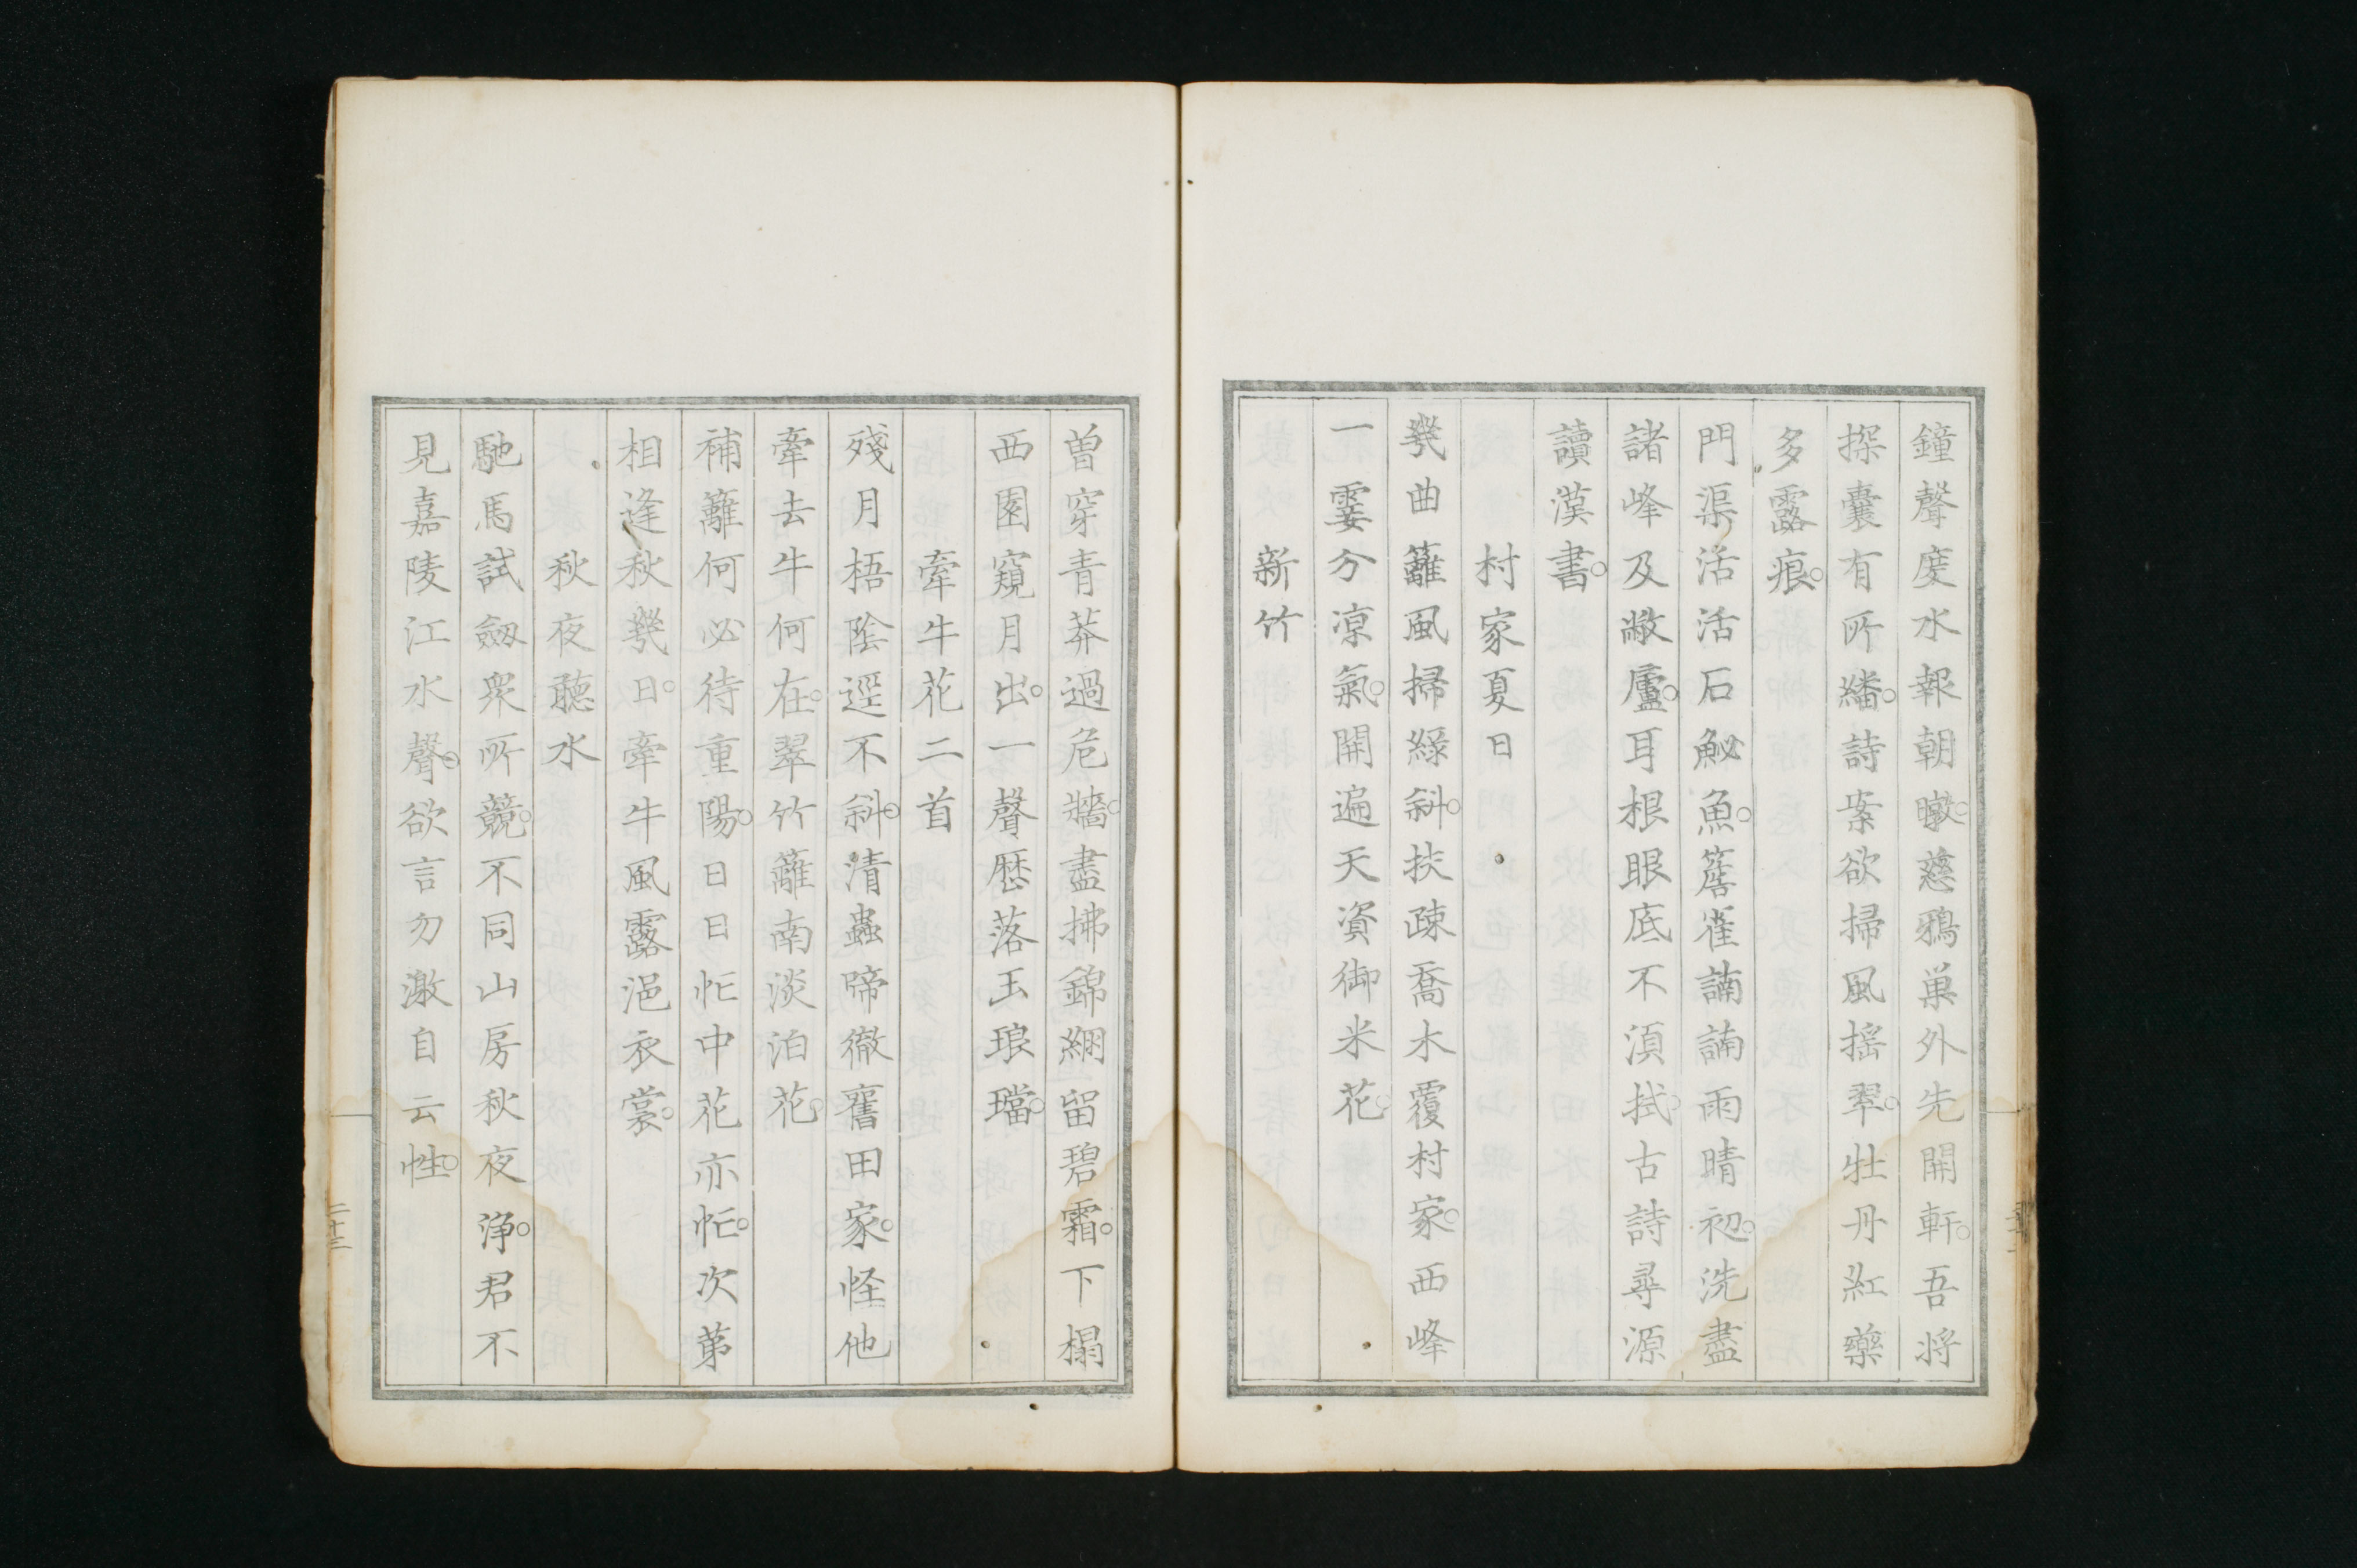 鐘聲度水報朝暾。慈鴉巣外先開軒。吾将
探囊有所繙。詩案欲掃風揺翠。牡丹紅藥
多露痕。
門渠活活石魦魚。簷雀諵諵雨晴初。洗盡
諸峰及敝廬。耳根眼底不湏拭。古詩尋源
讀漢書。
村家夏日
幾曲籬風掃緑斜。扶疎喬木覆村家。西峰
一霎分凉氣。開遍天資御米花。
新竹
曽穿青莽過危牆。盡拂錦綳留碧霜。下榻
西園窺月出。一聲歴落玉琅璫。
牽牛花二首
殘月梧陰逕不斜。清蟲啼徹舊田家。怪他
牽去牛何在。翠竹籬南淡泊花。
補籬何必待重陽。日日忙中花亦忙。次第
相逢秋幾日。牽牛風露浥衣裳。
秋夜聴水
馳馬試劔衆所競。不同山房秋夜浄。君不
見嘉陵江水聲。欲言勿激自云性。
二十三